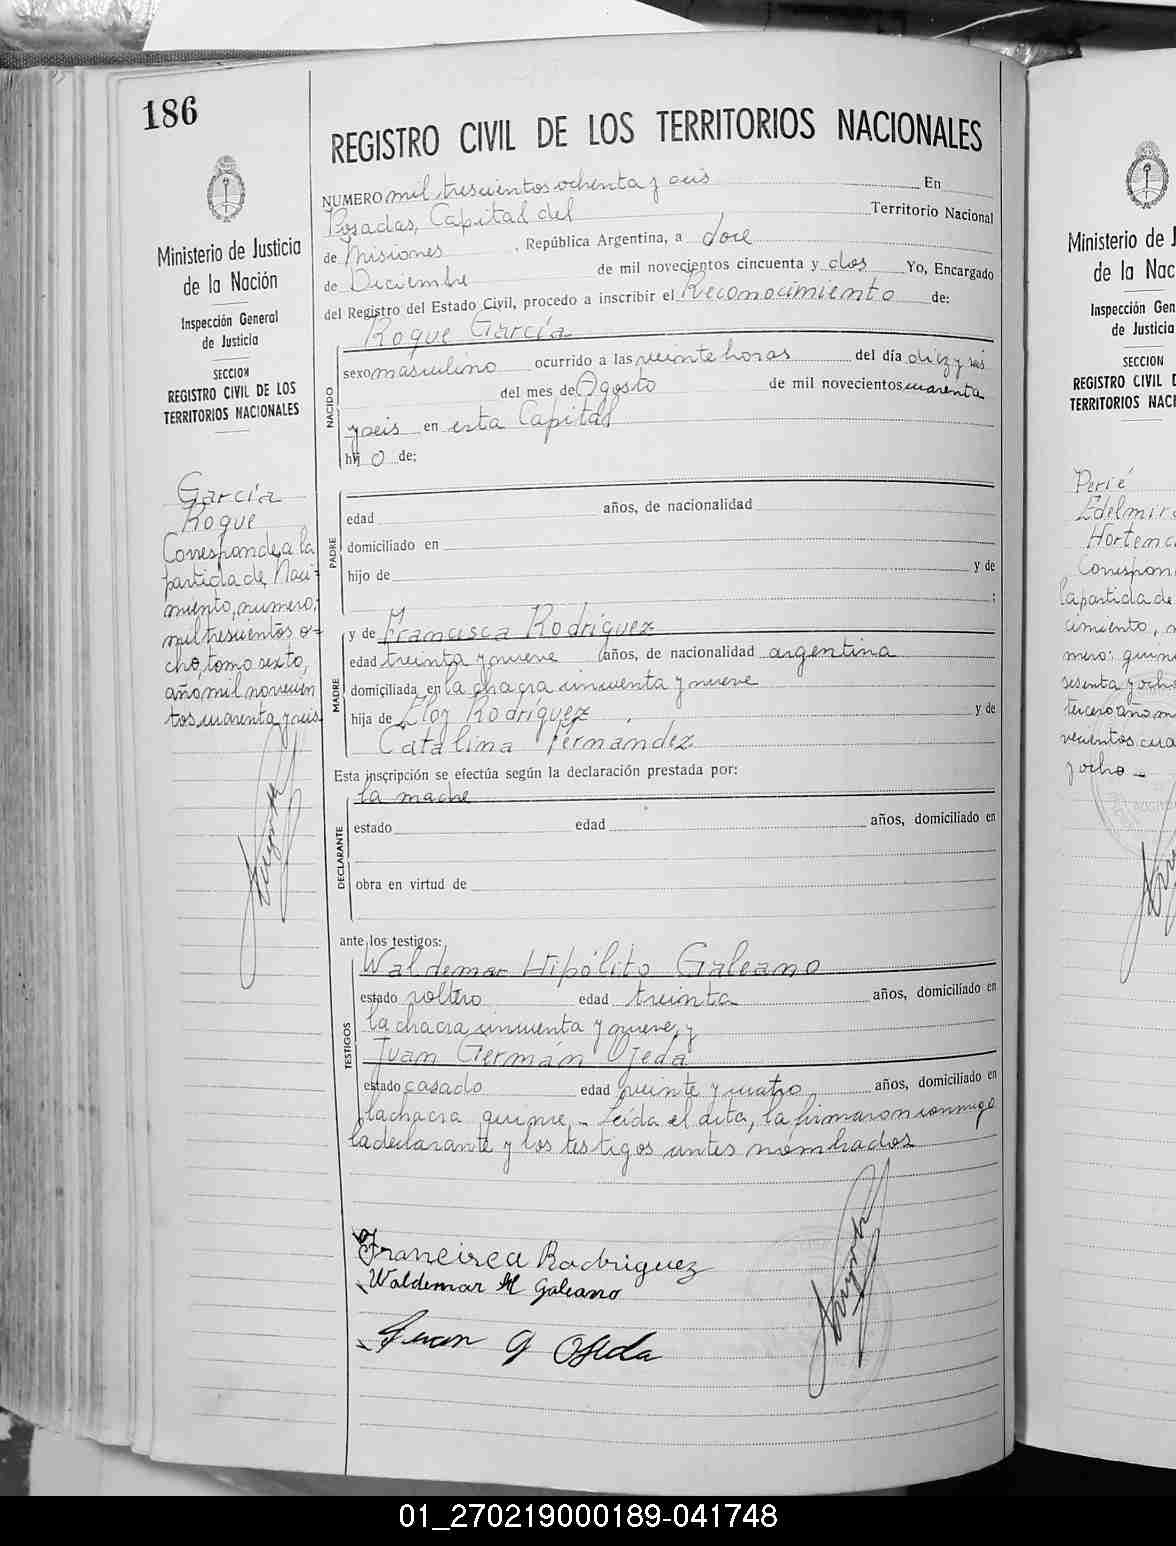 186
REGISTRO CIVIL DE LOS TERRITORIOS NACIONALES
Ministerio de Justicia
de la Nación
Inspección General
de Justicia
SECCION
REGISTRO CIVIL DE LOS
TERRITORIOS NACIONALES
García
Roque
Corresponde a la
partida de Naci-
miento, numero,
mil trescientos o-
cho, tomo sexto,
año mil novecien
tos cuarenta y seis
NUMERO mil trescientos ochenta y seis En
Posadas, Capital del Territorio Nacional
de Misiones, República Argentina, a doce
de Diciembre de mil novecientos cincuenta y dos Yo, Encargado
del Registro del Estado Civil, procedo a inscribir el Reconocimiento de:
Roque García
NACIDO
sexo masculino ocurrido a las veinte horas del día diez y seis
del mes de Agosto de mil novecientos cuarenta
y seis en esta Capital
hijo de:
PADRE
edad años, de nacionalidad
domiciliado en
hijo de y de
;
MADRE
y de Francisca Rodríguez
edad treinta y nueve años, de nacionalidad argentina
domiciliada en la chacra cincuenta y nueve
hija de Eloy Rodríguez y de
Catalina Fernandez
Esta inscripción se efectúa según la declaración prestada por:
la madre
DECLARANTE
estado edad años, domiciliado en
obra en virtud de
ante los testigos:
Waldemar Hipólito Galeano
TESTIGOS
estado soltero edad treinta años, domiciliado en
la chacra cincuenta y nueve, y
Juan Germán Ojeda
estado casado edad veinte y cuatro años, domiciliado en
la chacra quince. - Leída el acta, la firmaron conmigo
la declarante y los testigos antes nombrados
Francisca Rodriguez
Waldemar H Galeano
Juan G Ojeda
Ministerio de J
de la Nac
Inspección Gen
de Justicia
SECCION
REGISTRO CIVIL D
TERRITORIOS NACI
Perié
Edelmira
Hortenc
Correspon
la partida de
cimiento, n
mero: quini
sesenta y ocho
tercero año m
vecientos cua
y ocho
01_270219000189-041748